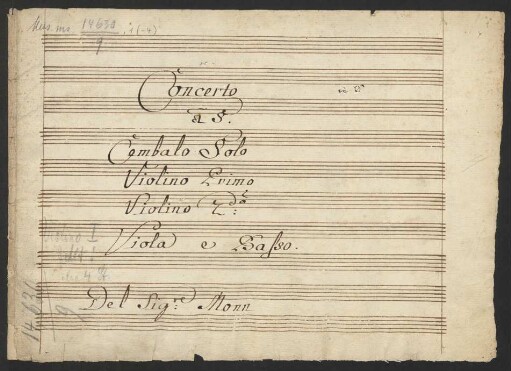 Mus. ms. 14630
9
Concerto
à 5.
Cembalo Solo
Violino Primo
Violino 2do
Viola e Basso.
Del Sigre Monn
14630
9